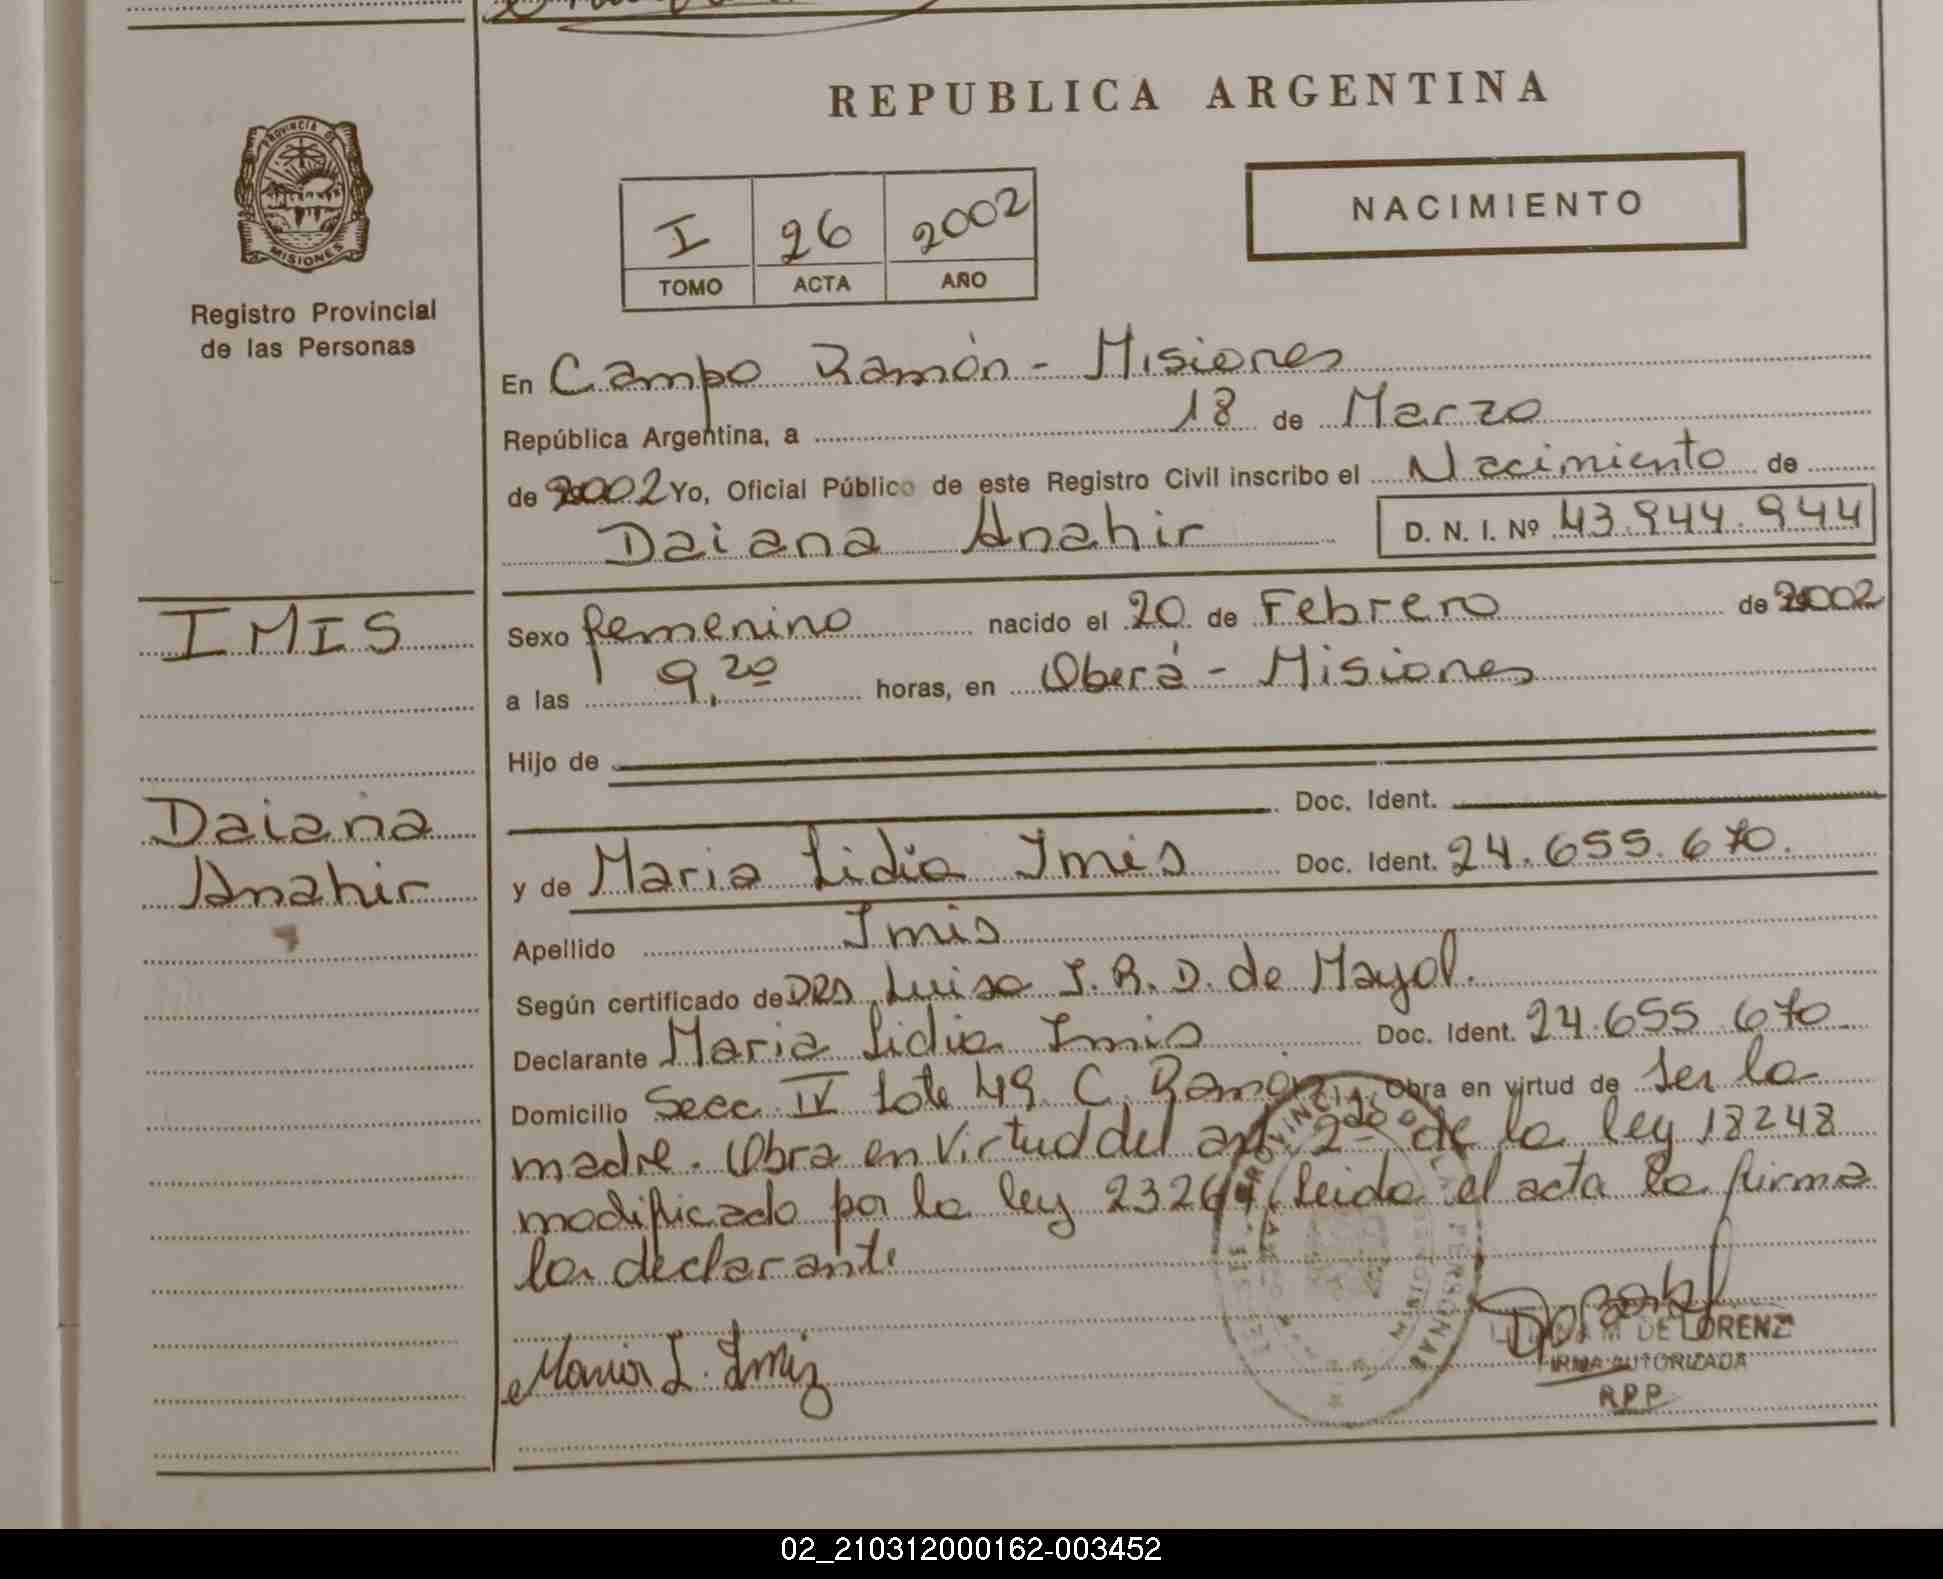 REPUBLICA ARGENTINA
PROVINCIA DE
MISIONES
Registro Provincial
de las Personas
I 26 2002
TOMO ACTA AÑO
NACIMIENTO
En Campo Ramón - Misiones
República Argentina, a 18 de Marzo
de 2002 Yo, Oficial Público de este Registro Civil inscribo el Nacimiento de
Daiana Anahir D. N. I. Nº 43.944.944
IMIS
Daiana
Anahir
Sexo femenino nacido el 20 de Febrero de 2002
a las 9,20 horas, en Oberá - Misiones
Hijo de
Doc. Ident.
y de Maria Lidia Imis Doc. Ident. 24.655.670.
Apellido Imis
Según certificado de DRA Luisa I. R. D. de Mayol.
Declarante Maria Lidia Imis Doc. Ident. 24.655.670
Domicilio Secc. IV Lote 49 C. Ramón Obra en virtud de ser la
madre. Obra en Virtud del art. 2do de la ley 18248
modificado por la ley 23264. Leida el acta la firma
la declarante
Maria L. Imiz
DE LORENZ
FIRMA AUTORIZADA
R.P.P.
02_210312000162-003452